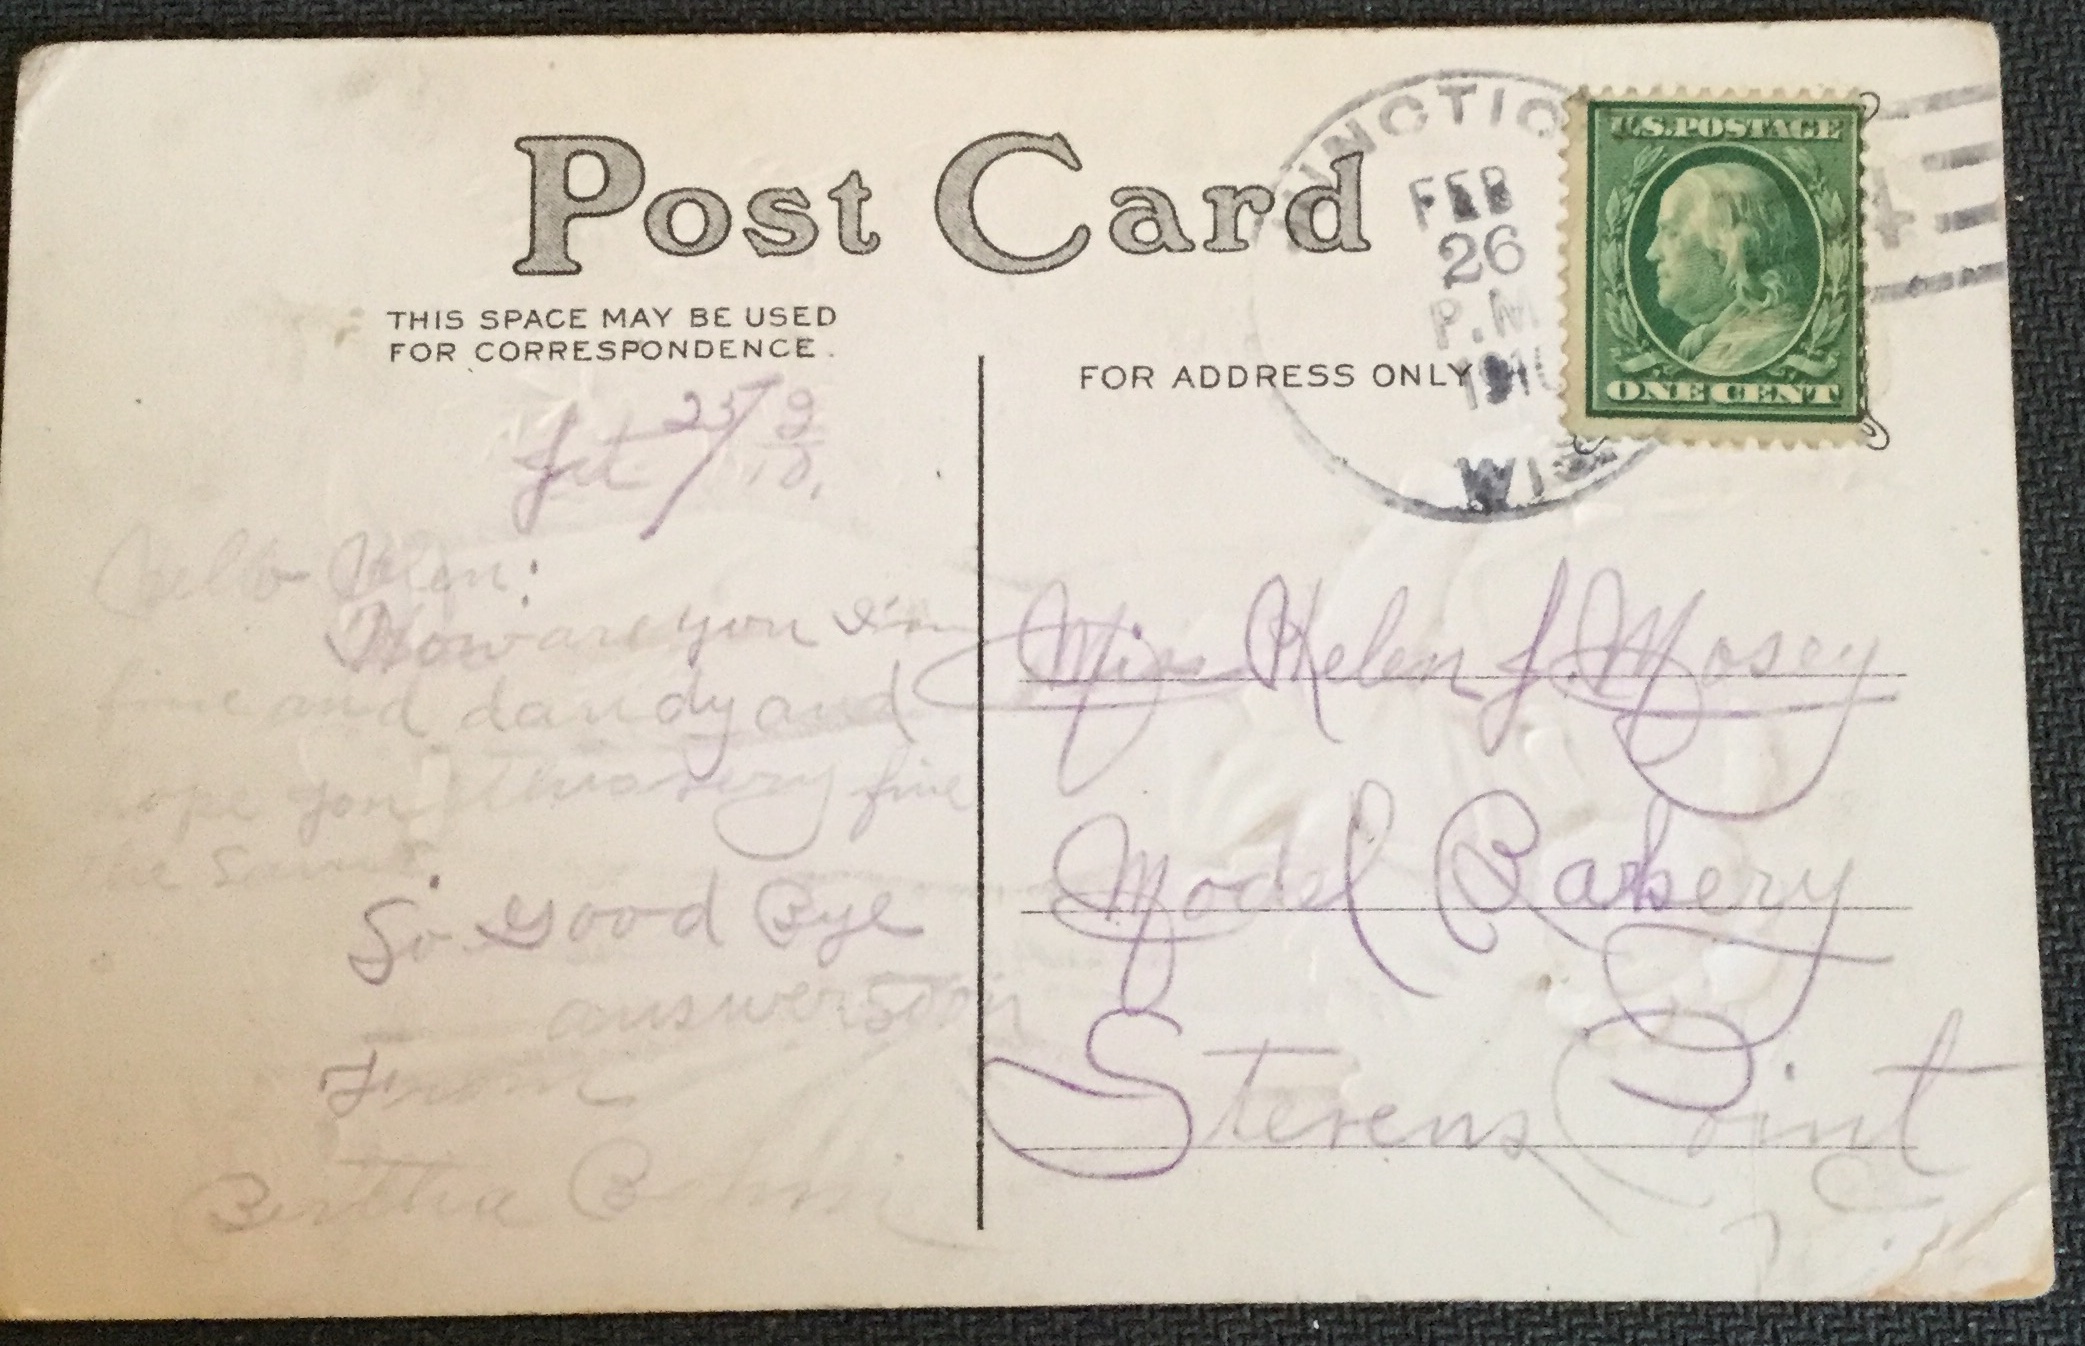 Post Card
THIS SPACE MAY BE USED
FOR CORRESPONDENCE.
FOR ADDRESS ONLY
UNCTIO
FEB
26
P.M
1910
WIS
4
U.S.POSTAGE
ONE CENT
25/ 2
10.
Hello Helen:
How are you I'm
fine and dandy and
hope you
fine
the same
So Good Bye
answer soon
From
Bertha
Miss Helen J. Mosey
Model Bakery
Stevens Point